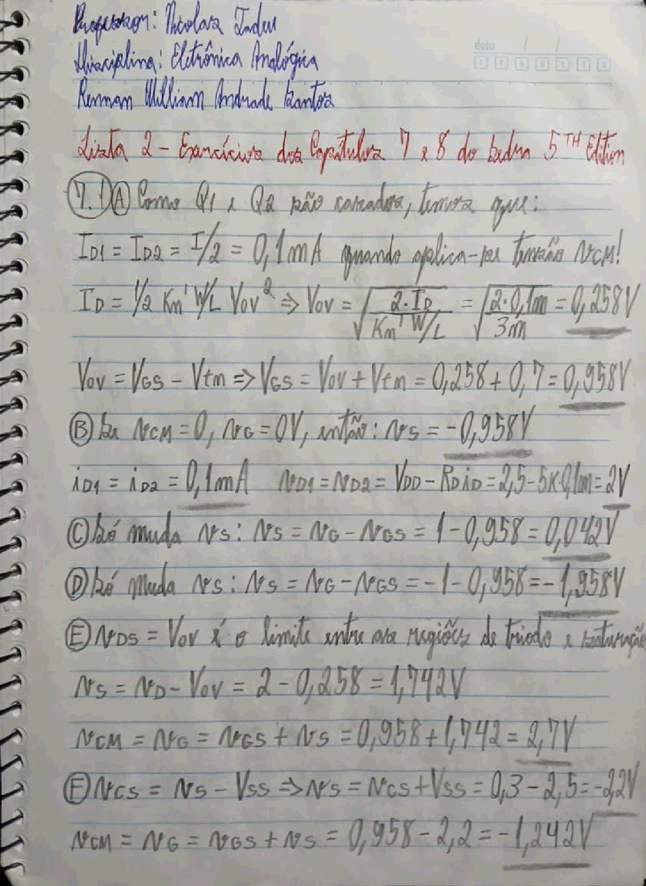 Professor: Nicolas
data / /
Disciplina: Eletrônica Analógica
Rennan William Andrade Santos
Lista 2 - Exercícios dos Capítulos 7 e 8 do Sedra 5TH Edition
7.1 (A) Como Q1 e Q2 são casados, temos que:
ID1 = ID2 = I/2 = 0,1mA quando aplica-se tensão vCM!
ID = 1/2 Kn' W/L VOV² ⇒ VOV = √(2·ID / Kn' W/L) = √(2·0,1m / 3m) = 0,258V
VOV = VGS - Vtm ⇒ VGS = VOV + Vtm = 0,258 + 0,7 = 0,958V
(B) Se vCM = 0, vG = 0V, então: vS = -0,958V
iD1 = iD2 = 0,1mA vD1 = vD2 = VDD - RD iD = 2,5 - 5K·0,1m = 2V
(C) Só muda vS: vS = vG - vGS = 1 - 0,958 = 0,042V
(D) Só muda vS: vS = vG - vGS = -1 - 0,958 = -1,958V
(E) vDS = VOV é o limite entre as regiões de triodo e saturação
vS = vD - VOV = 2 - 0,258 = 1,742V
vCM = vG = vGS + vS = 0,958 + 1,742 = 2,7V
(F) vCS = vS - VSS ⇒ vS = vCS + VSS = 0,3 - 2,5 = -2,2V
vCM = vG = vGS + vS = 0,958 - 2,2 = -1,242V